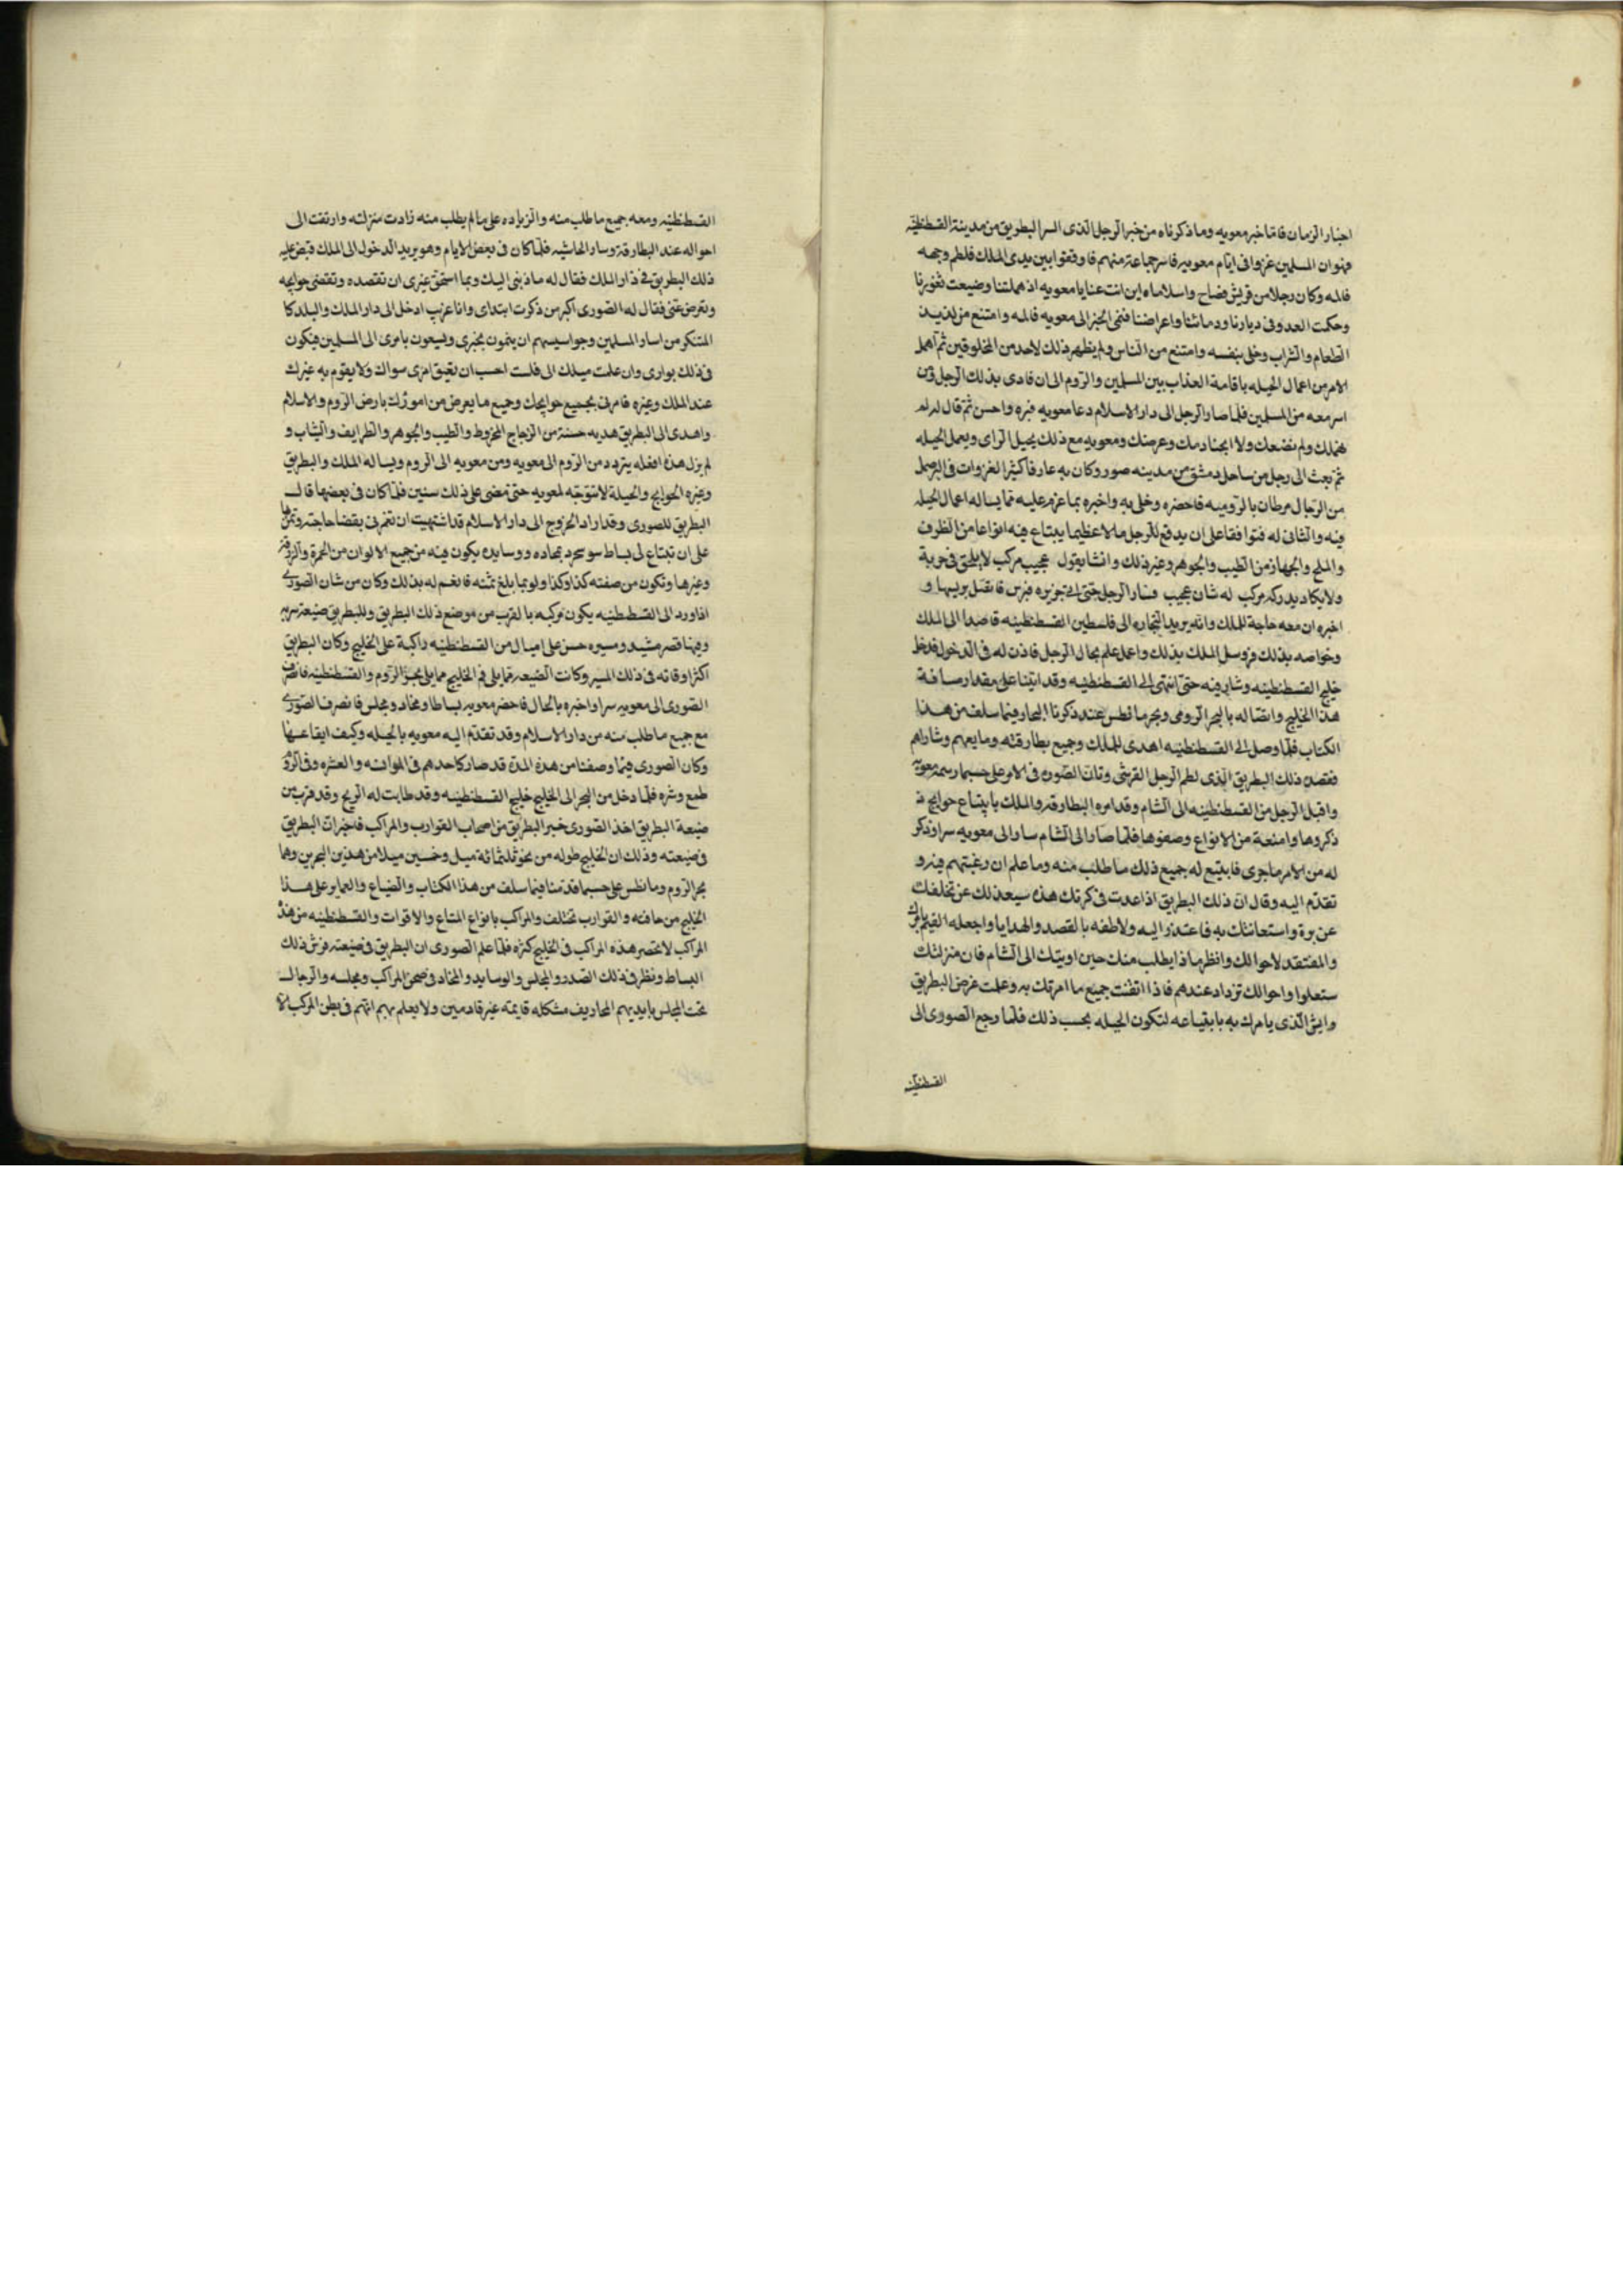 اخبار الزمان فاما خبر معويه وما ذكرناه من خبر الرجل الذى اسر البطريق من مدينة القسطنطنيه
فهو ان المسلمين غزوا فى ايام معويه فاسر جماعة منهم فاوقفوا بين يدى الملك فلطم وجهه
فالمه وكان رجلا من قريش فصاح واسلاماه اين انت عنا يا معويه اذ هملتنا وضيعت ثغورنا
وحكمت العدو فى ديارنا ودمائنا واعراضنا فنمى الخبر الى معويه فالمه وامتنع من لذيذ
الطعام والشراب وخلى بنفسه وامتنع من الناس ولم يظهر ذلك لاحد من المخلوقين ثم اهمل
الامر من اعمال الحيله باقامة العذاب بين المسلمين والروم الى ان فادى بذلك الرجل ومن
اسر معه من المسلمين فلما صار الرجل الى دار الاسلام دعا معويه فبره واحسن ثم قال له لم
نهملك ولم نضعك ولا ابحنا دمك وعرضك ومعويه مع ذلك يجيل الراى ويعمل الحيله
ثم بعث الى رجل من ساحل دمشق من مدينه صور وكان به عارفا كثير الغزوات فى البر صمل
من الرجال مرطان بالروميه فاحضره وخلى به واخبره بما عزم عليه مما يساله اعمال الحيله
فيه والتانى له فتوافقا على ان يدفع للرجل مالا عظيما يبتاع فيه انواعا من الظرف
والملح والجهاز من الطيب والجوهر وغير ذلك وانشا يقول عجيب مركب لا يلحق فى جريه
ولا يكاد يدركه مركب له شان عجيب فسار الرجل حتى الى جزيره قبرس فاتصل بريسها و
اخبره ان معه حاجة للملك وانه يريد التجاره الى فلسطين القسطنطنيه قاصدا الى الملك
وخواصه بذلك فروسل الملك بذلك واعمل علم بحال الرجل فاذن له فى الدخول فدخل
خليج القسطنطنيه وشار فيه حتى انتهى الى القسطنطنيه وقد اتينا على مقدار مسافة
هذا الخليج واتصاله بالبحر الرومى وبحر مانطس عند ذكرنا البحار فيما سلف من هذا
الكتاب فلما وصل الى القسطنطنيه اهدى للملك وجميع بطارقته وما يعهم وشاراهم
فقصد ذلك البطريق الذى لطم الرجل القرشى وتانى الصورى فى الامر على حسب ما رسمه معويه
واقبل الرجل من القسطنطنيه الى الشام وقد امره البطارقه والملك بابتياع حوايج ذ
ذكروها وامتعة من الانواع وصفوها فلما صار الى الشام سار الى معويه سرا وذكر
له من الامر ما جرى فابتيع له جميع ذلك ما طلب منه وما علم ان رغبتهم فيه و
تقدم اليه وقال ان ذلك البطريق اذا عدت فى كرتك هذه سيعذلك عن تخلفك
عن بره واستعانتك به فاعتذر اليه ولاطفه بالقصد والهدايا واجعله القيم بامرك
والمفتقد لاحوالك وانظر ماذا يطلب منك حين اوبتك الى الشام فان منزلتك
ستعلوا واحوالك تزداد عندهم فاذا اتقنت جميع ما امرتك به وعلمت غرض البطريق
وايش الذى يامرك به بابتياعه لتكون الحيله بحسب ذلك فلما رجع الصورى الى
القسطنطنيه
القسطنطنيه ومعه جميع ما طلب منه والزياده على ما لم يطلب منه زادت منزلته وارتفت الى
احواله عند البطارقة وساير الحاشيه فلما كان فى بعض الايام وهو يريد الدخول الى الملك قبض عليه
ذلك البطريق فى دار الملك فقال له ما ذنبى اليك وبما استحق غيرى ان تقصده وتقضى حوايجه
وتعرض عنى فقال له الصورى اكبر من ذكرت ابتدانى وانا غريب ادخل الى دار الملك والبلد كا
المتنكر من اسار المسلمين وجواسيسهم ان ينمون بخبرى ويسعون بامرى الى المسلمين فيكون
فى ذلك بوارى وان علمت ميلك الى فلست احسب ان تعيق امرى سواك ولا يقوم به غيرك
عند الملك وغيره فامرنى بجميع حوايجك وجميع ما يعرض من امورك بارض الروم والاسلام
واهدى الى البطريق هديه حسنة من الزجاج المخروط والطيب والجوهر والظرايف والثياب و
لم يزل هذا فعله يتردد من الروم الى معويه ومن معويه الى الروم ويساله الملك والبطريق
وغيره الحوايج والحيلة لا تتوجه لمعويه حتى مضى على ذلك سنين فلما كان فى بعضها قال
البطريق للصورى وقد اراد الخروج الى دار الاسلام قد اشتهيت ان تغمرنى بقضا حاجة وتمن بها
على ان تبتاع لى بساط سوسجرد بمخاده ووسايده يكون فيه من جميع الالوان من الحمرة والزرقه
وغيرها وتكون من صفته كذا وكذا ولو بما بلغ ثمنه فانعم له بذلك وكان من شان الصورى
اذا ورد الى القسطنطنيه يكون مركبه بالقرب من موضع ذلك البطريق وللبطريق ضيعة سريه
وفيها قصر مشيد ومسيره حسن على اميال من القسطنطنيه راكبة على الخليج وكان البطريق
اكثر اوقاته فى ذلك المسير وكانت الضيعه مما يلى فم الخليج مما يلى بحر الروم والقسطنطنيه فانصرف
الصورى الى معويه سرا واخبره بالحال فاحضر معويه بساطا ومخاد ومجلس فانصرف الصورى
مع جميع ما طلب منه من دار الاسلام وقد تقدم اليه معويه بالحيله وكيف ايقاعها
وكان الصورى فيما وصفنا من هذه المدة قد صار كاحدهم فى الموانسه والعشره وفى الروم
طمع وشره فلما دخل من البحر الى الخليج خليج القسطنطنيه وقد طابت له الريح وقد قرب من
ضيعة البطريق اخذ الصورى خبر البطريق من اصحاب القوارب والمراكب فاخبر ان البطريق
فى ضيعته وذلك ان الخليج طوله من نحو ثلثمائة ميل وخمسين ميلا من هذين البحرين وهما
بحر الروم ومانطس على حسب ما قدمنا فيما سلف من هذا الكتاب والضياع والعماير على هذا
الخليج من حافته والقوارب تختلف والمراكب بانواع المتاع والاقوات والقسطنطنيه من هذه
المراكب لا تحصر هذه المراكب فى الخليج كثره فلما علم الصورى ان البطريق فى ضيعته فرش ذلك
البساط ونظر فى ذلك الصدر والمجلس والوسايد والمخاد فى صحن المراكب ومجلسه والرجال
تحت المجلس بايديهم المجاديف مشكله قايمته غير قادمين ولا يعلم بهم انهم فى بطن المركب الا